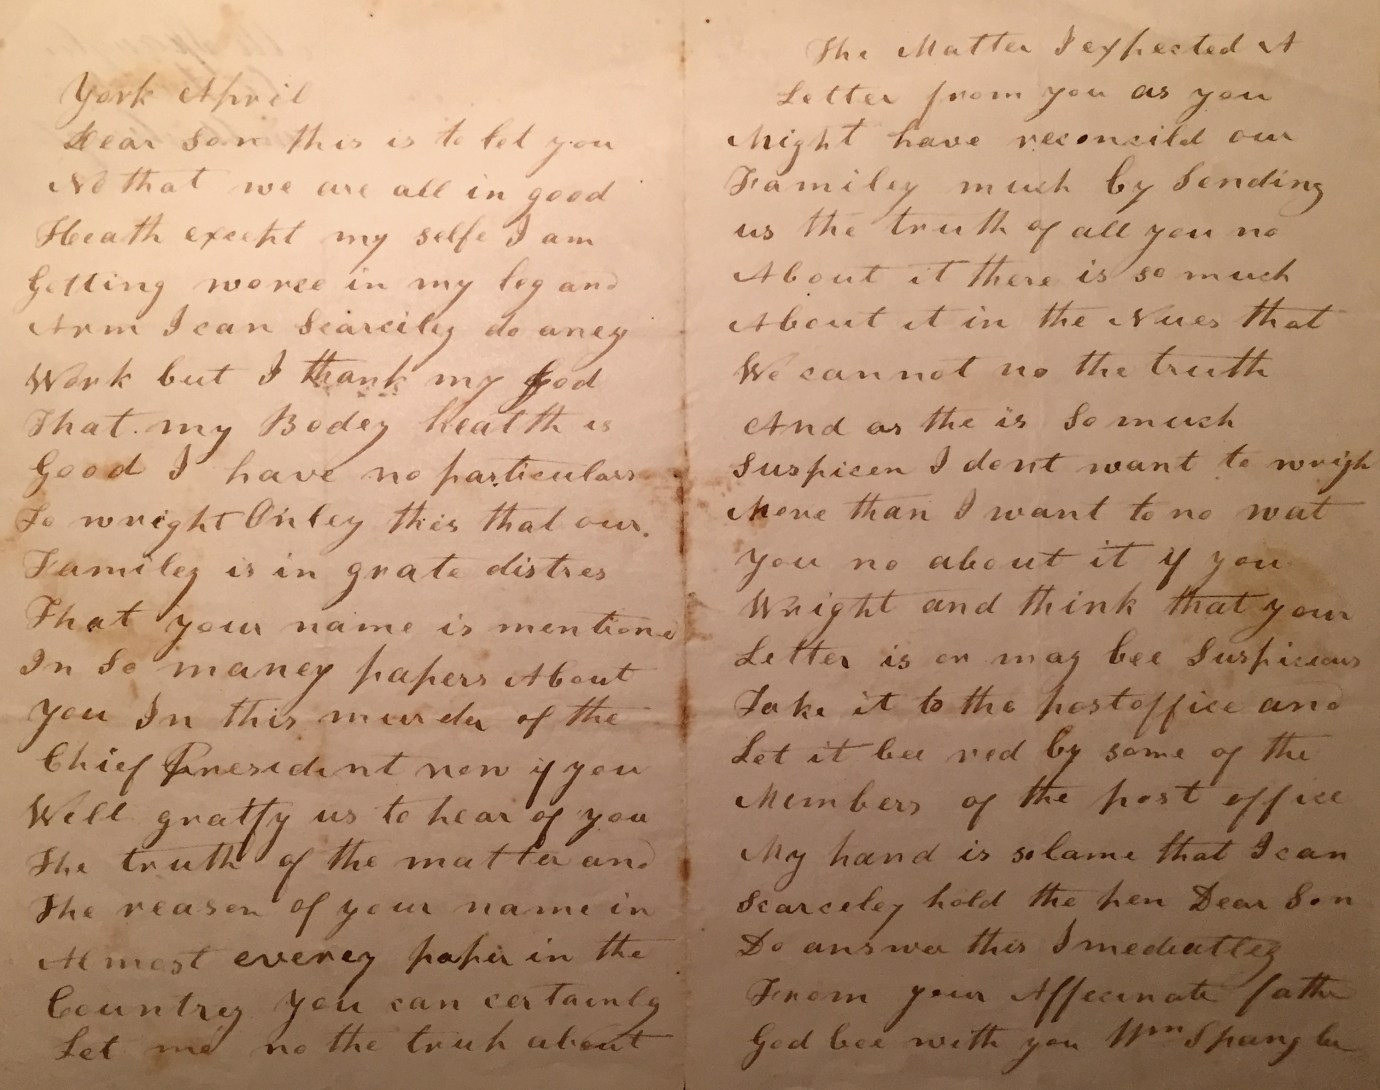 York April
Dear Son this is to let you
No that we are all in good
Heath except my selfe I am
Getting worce in my leg and
Arm I can Scarciley do aney
Work but I thank my God
That my Bodey Health is
Good I have no particulars
To wright Onley this that our
Familey is in grate distres
That your name is mentiond
In So maney papers About
You In this murder of the
Chief President now if you
Well gratfy us to hear of you
The truth of the matter and
The reason of your name in
Almost everey paper in the
Country You can certainly
Let me no the truh about
The Matter I expected A
Letter from you as you
Might have reconcild our
Familey much by Sending
us the truth of all you no
About it there is so much
About it in the Nues that
We cannot no the truth
And as the is So much
Suspicen I dont want to wrigh
More than I want to no wat
You no about it if you
Wright and think that your
Letter is or may bee Suspicious
Take it to the postoffice and
Let it bee red by some of the
Members of the post office
My hand is so lame that I can
Scarceley hold the pen Dear Son
Do answer this Imediatley
From your Affecinate father
God bee with you Wm Spangler